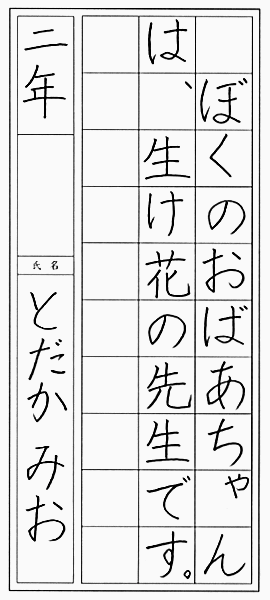 ぼくのおばあちゃん
は、生け花の先生です。
二年
氏名
とだか みお